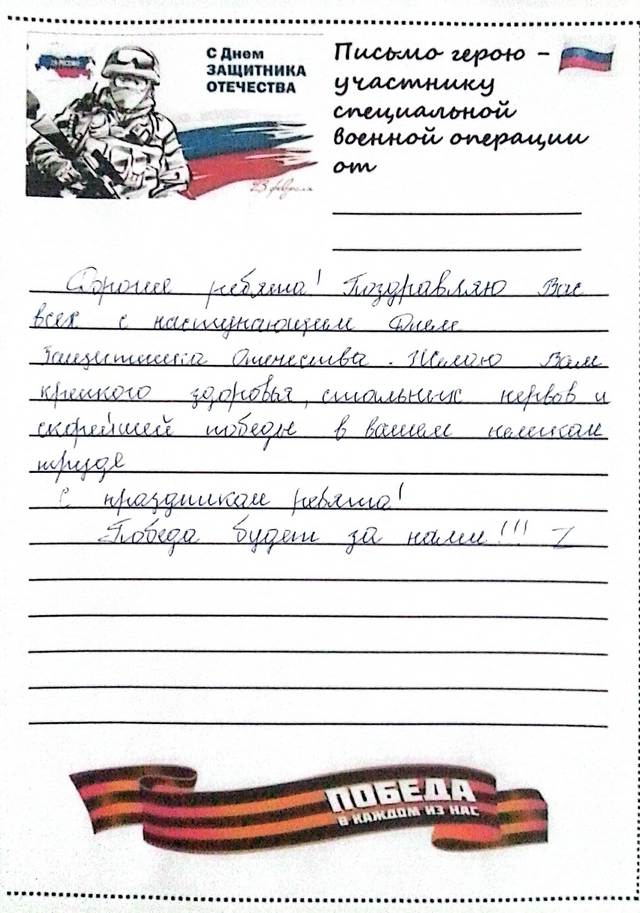 С Днем
ЗАЩИТНИКА
ОТЕЧЕСТВА
23 февраля
Письмо герою –
участнику
специальной
военной операции
от
Дорогие ребята! Поздравляю Вас
всех с наступающим Днем
Защитника Отечества. Желаю Вам
крепкого здоровья, стальных нервов и
скорейшей победы в вашем нелегком
труде
С праздником ребята!
Победа будет за нами!!! Z
ПОБЕДА
В КАЖДОМ ИЗ НАС